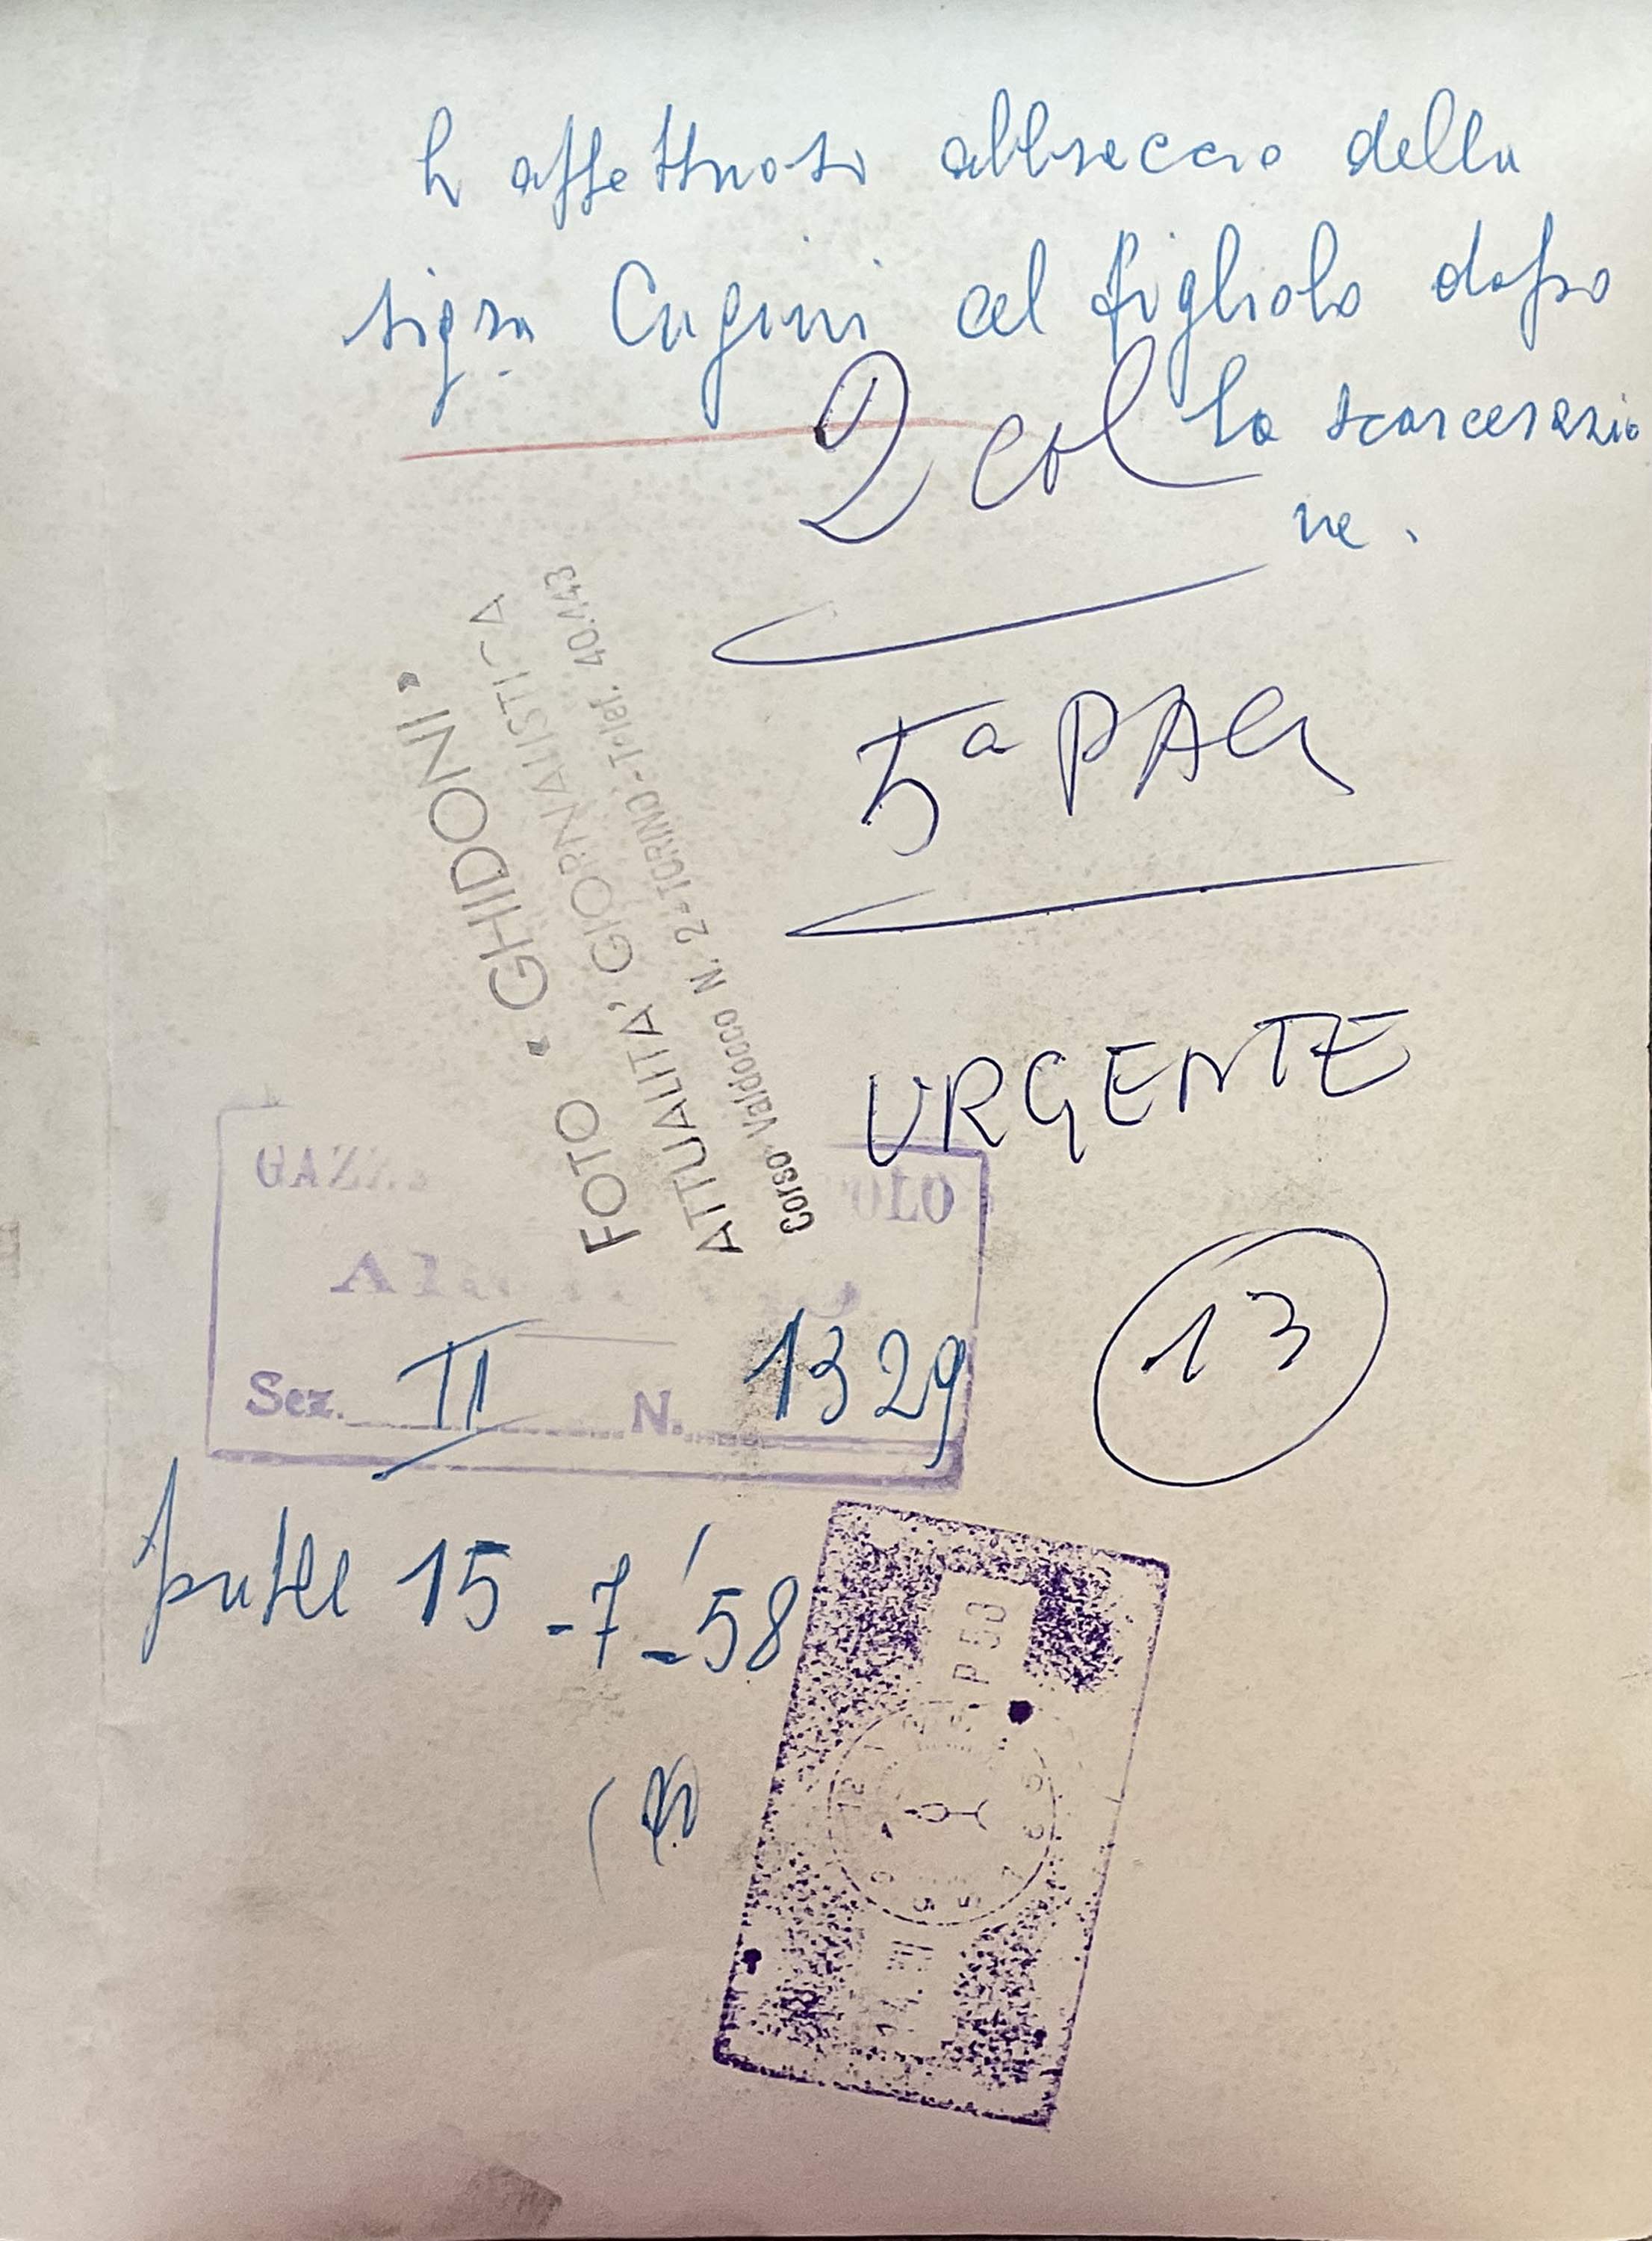 L'affettuoso abbraccio della
sig.ra Cugini al figliolo dopo
la scarcerazio
ne.
2 col
5a PAG
URGENTE
13
FOTO « GHIDONI »
ATTUALITA' GIORNALISTICA
Corso Valdocco N. 2 - TORINO - Telef. 40.443
GAZZ OLO
Sez. II N. 1329
pubbl 15-7-'58
12 1 2
9
5
6
7
14. VII